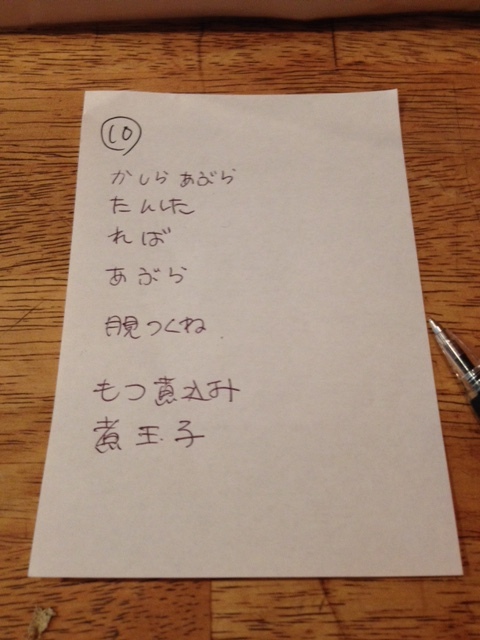 10
かしらあぶら
たんした
れば
あぶら
月見つくね
もつ煮込み
煮玉子